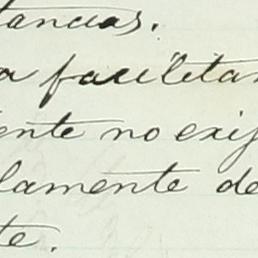 tancias.
a facilitar
iente no exij
lamente de
te.